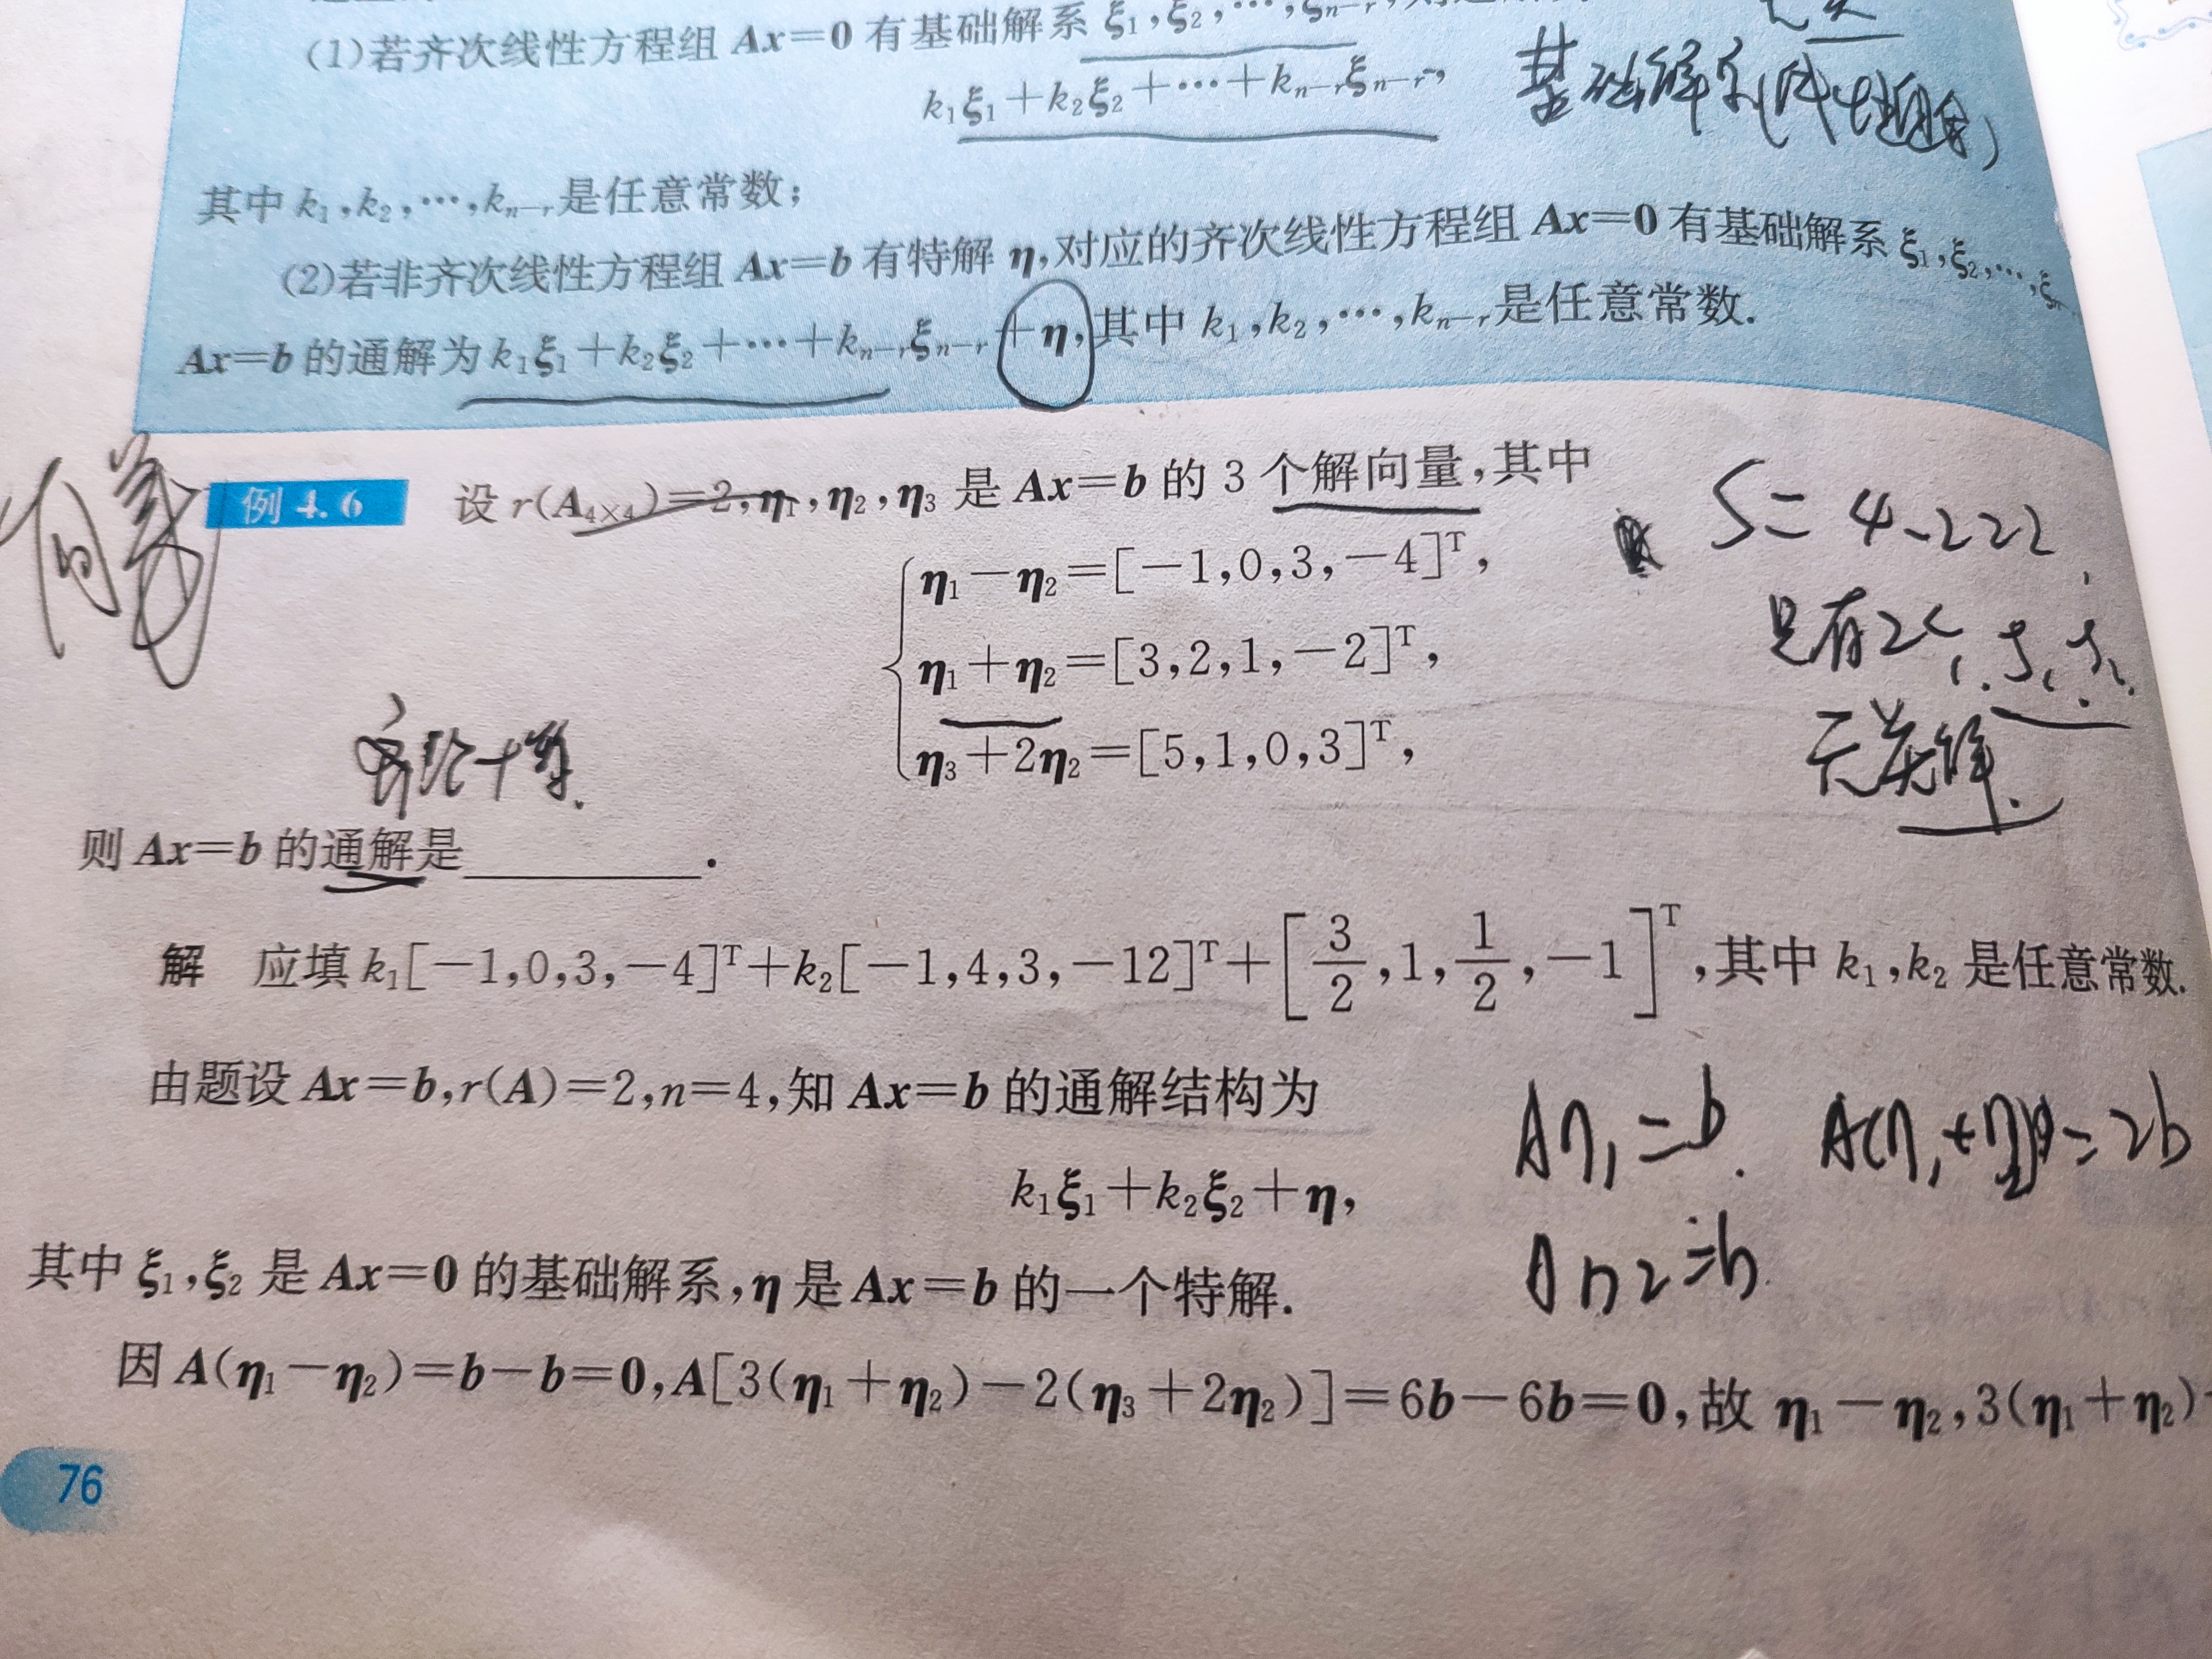 (1)若齐次线性方程组 Ax=0 有基础解系 ξ₁,ξ₂,…,ξₙ₋ᵣ,
k₁ξ₁+k₂ξ₂+…+kₙ₋ᵣξₙ₋ᵣ,
基础解系(线性组合)
其中 k₁,k₂,…,kₙ₋ᵣ是任意常数;
(2)若非齐次线性方程组 Ax=b 有特解 η,对应的齐次线性方程组 Ax=0 有基础解系 ξ₁,ξ₂,…,
Ax=b 的通解为 k₁ξ₁+k₂ξ₂+…+kₙ₋ᵣξₙ₋ᵣ+η,其中 k₁,k₂,…,kₙ₋ᵣ是任意常数.
例 4.6 设 r(A₄ₓ₄)=2,η₁,η₂,η₃ 是 Ax=b 的 3 个解向量,其中
S=4-2=2
η₁-η₂=[-1,0,3,-4]ᵀ,
只有2个
η₁+η₂=[3,2,1,-2]ᵀ,
无关解.
η₃+2η₂=[5,1,0,3]ᵀ,
则 Ax=b 的通解是________.
解 应填 k₁[-1,0,3,-4]ᵀ+k₂[-1,4,3,-12]ᵀ+[3/2,1,1/2,-1]ᵀ,其中 k₁,k₂ 是任意常数.
由题设 Ax=b,r(A)=2,n=4,知 Ax=b 的通解结构为
Aη₁=b. A(η₁+η₂)=2b
k₁ξ₁+k₂ξ₂+η,
Aη₂=b.
其中 ξ₁,ξ₂ 是 Ax=0 的基础解系,η 是 Ax=b 的一个特解.
因 A(η₁-η₂)=b-b=0,A[3(η₁+η₂)-2(η₃+2η₂)]=6b-6b=0,故 η₁-η₂,3(η₁+η₂)-
76